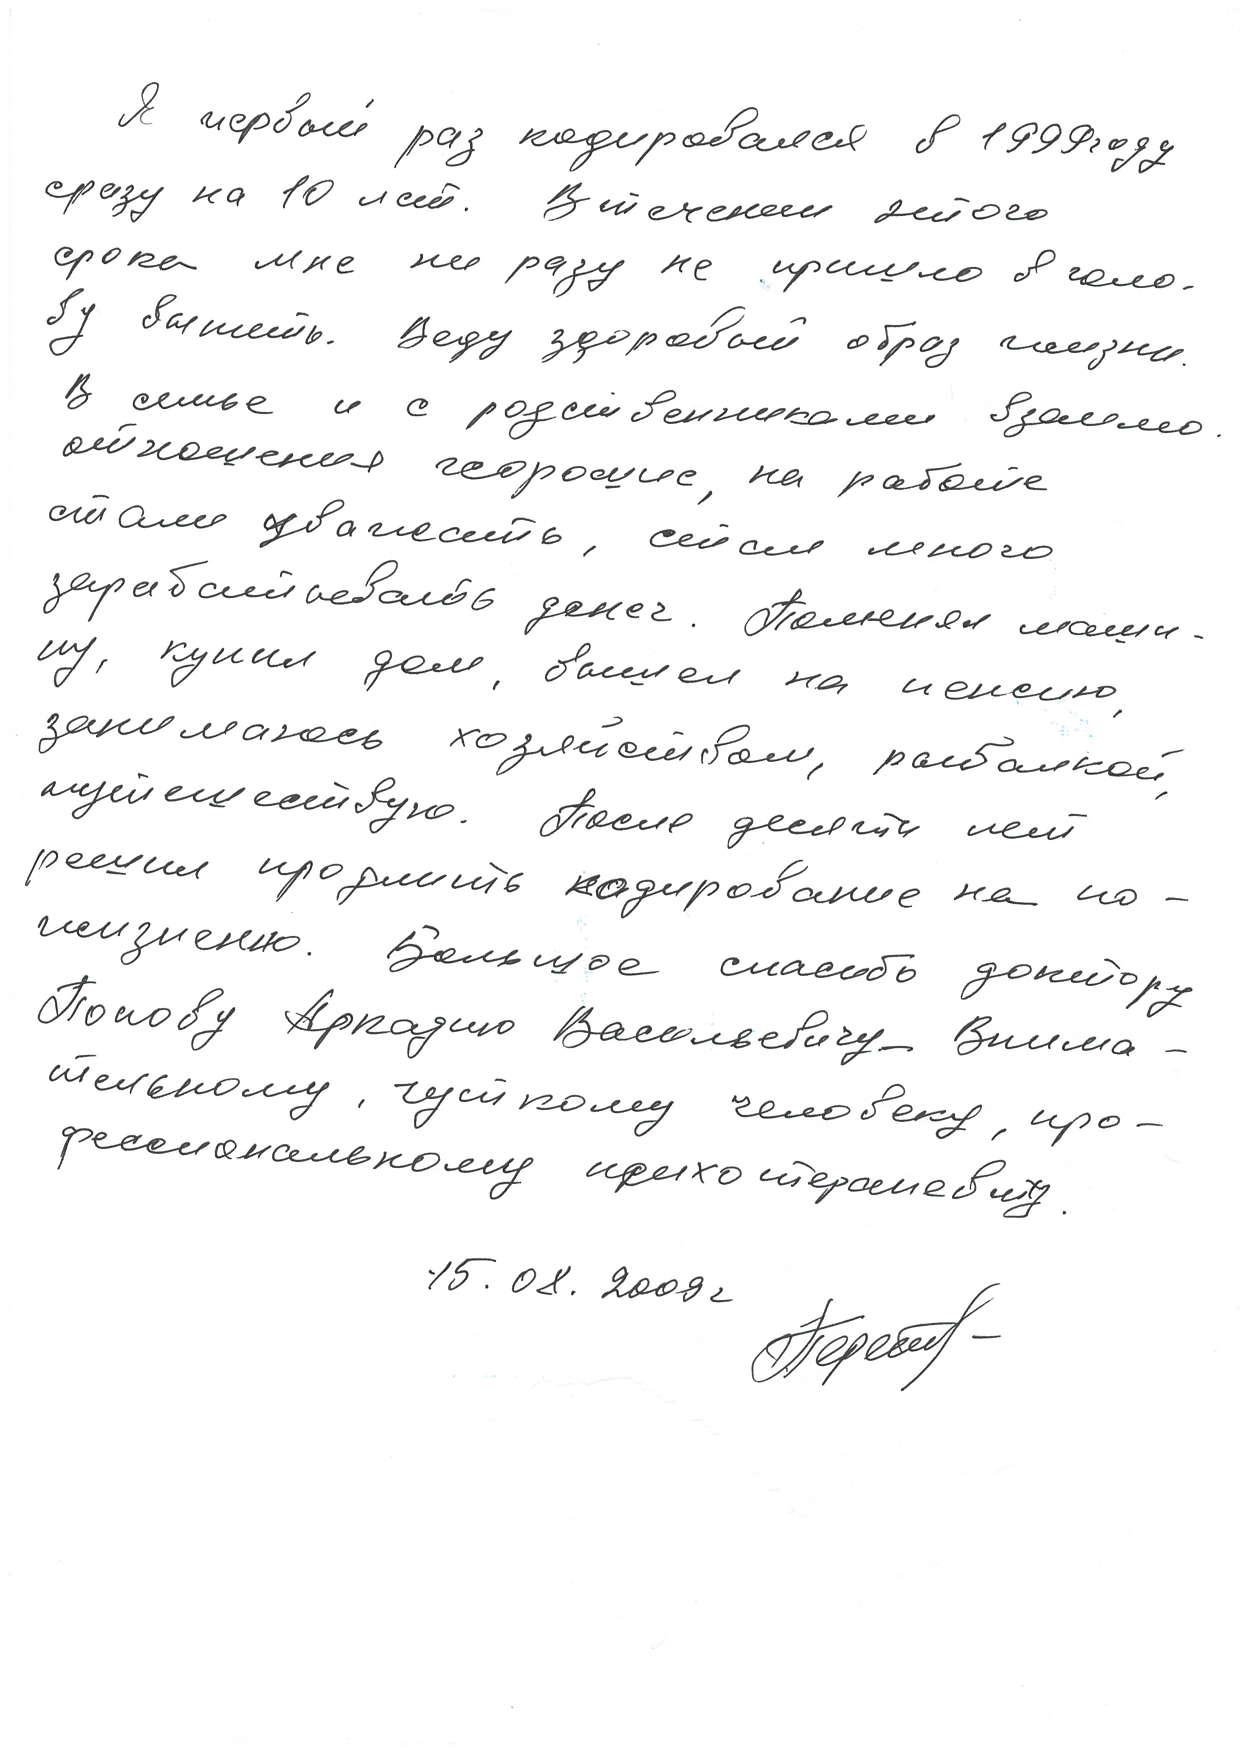 Я первый раз кодировался в 1999 году
сразу на 10 лет. В течении этого
срока мне ни разу не пришло в голо-
ву выпить. Веду здоровый образ жизни.
В семье и с родственниками взаимо-
отношения хорошие, на работе
стали уважать, стал много
зарабатывать денег. Поменял маши-
ну, купил дом, вышел на пенсию,
занимаюсь хозяйством, рыбалкой,
путешествую. После десяти лет
решил продлить кодирование на по-
жизненно. Большое спасибо доктору
Попову Аркадию Васильевичу. Внима-
тельному, чуткому человеку, про-
фессиональному психотерапевту.
15.08.2009 г